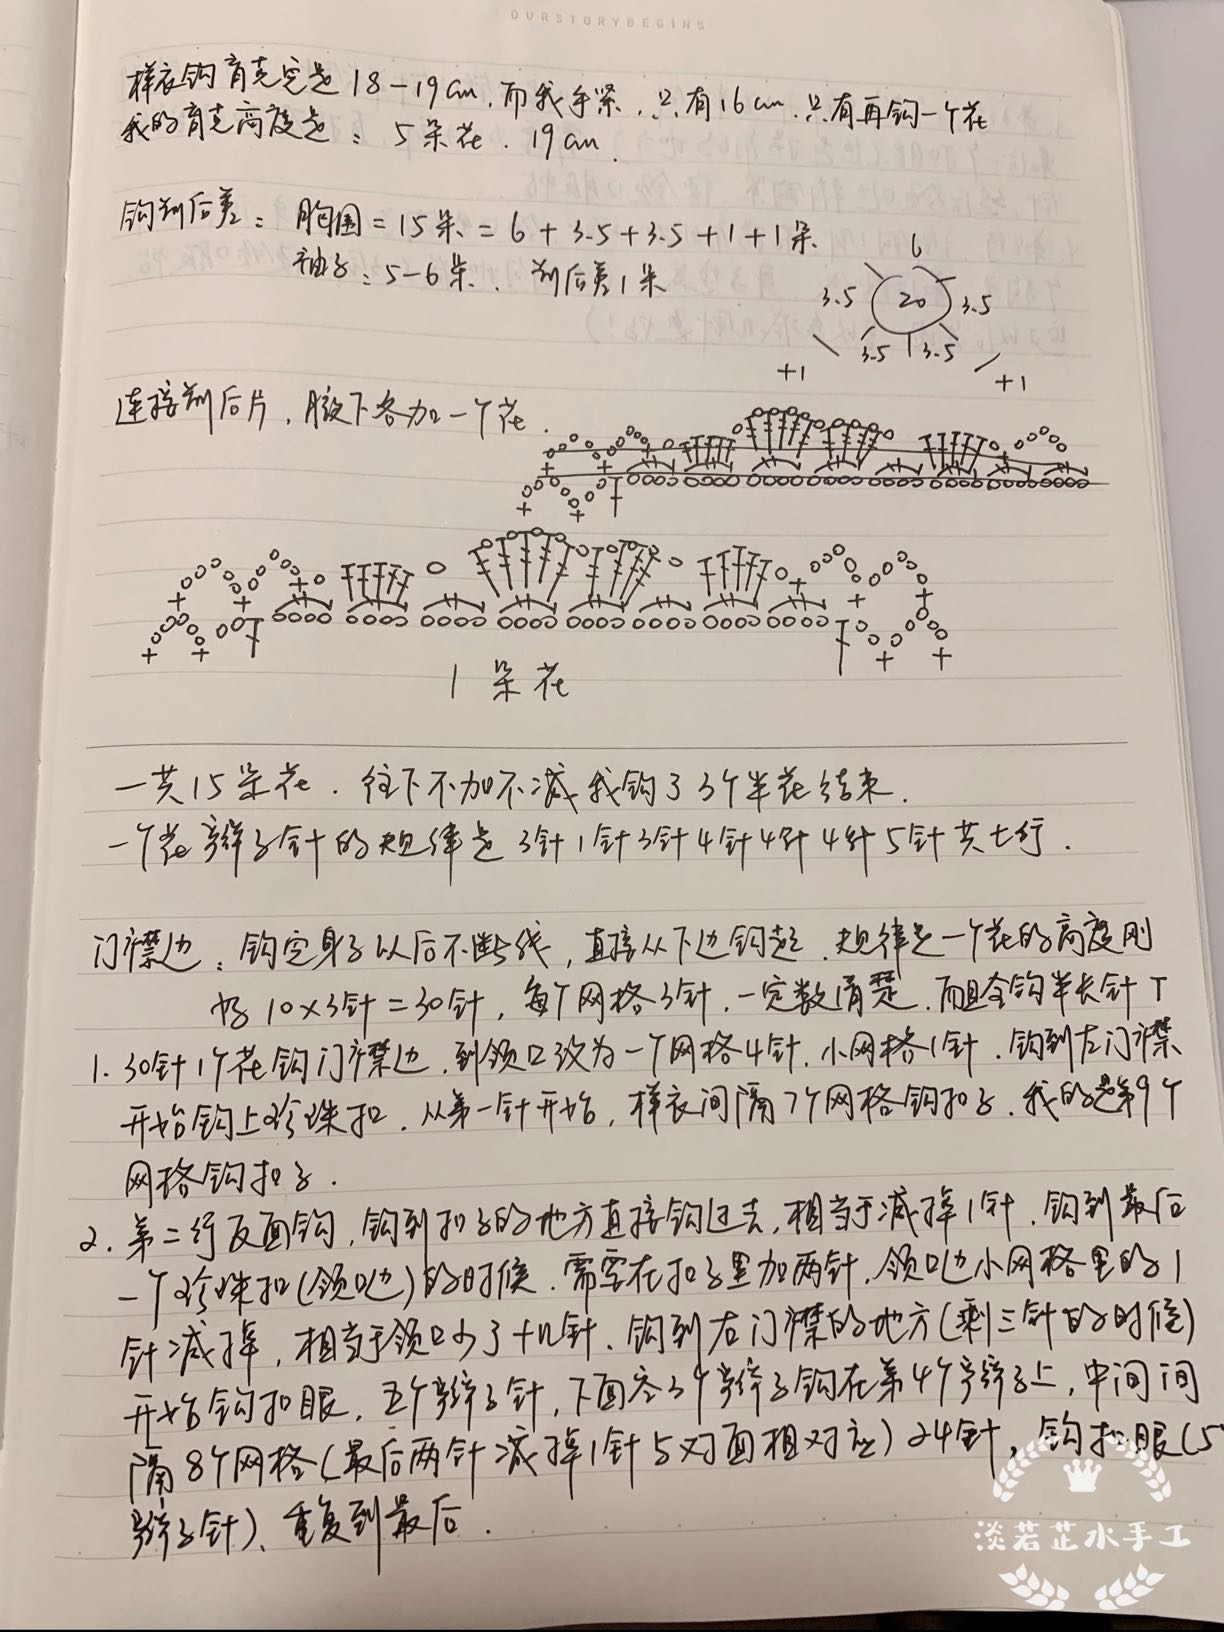 OURSTORYBEGINS
样衣钩育克完是18-19cm,而我手紧,只有16cm,只有再钩一个花
我的育克高度是:5朵花.19cm.
钩前后差:胸围=15朵=6+3.5+3.5+1+1朵
袖子:5-6朵.前后差1朵
6
3.5 20 3.5
3.5 3.5
+1 +1
连接前后片,腋下各加一个花.
1朵花
一共15朵花.往下不加不减我钩了3个半花结束.
一个花辫子针的规律是3针1针3针4针4针4针5针共七行.
门襟边:钩完身子以后不断线,直接从下边钩起.规律是一个花的高度刚
好10×3针=30针,每个网格3针,一定数清楚.而且全钩半长针T
1.30针1个花钩门襟边.到领口改为一个网格4针.小网格1针.钩到左门襟
开始钩上珍珠扣.从第一针开始,样衣间隔7个网格钩扣子.我的是第9个
网格钩扣子.
2.第二行反面钩,钩到扣子的地方直接钩过去,相当于减掉1针.钩到最后
一个珍珠扣(领口边)的时候.需要在扣子里加两针,领口边小网格里的1
针减掉,相当于领口少了十几针.钩到右门襟的地方(剩三针的时候)
开始钩扣眼.五个辫子针,下面空3个辫子钩在第4个辫子上,中间间
隔8个网格(最后两针减掉1针与对面相对应)24针,钩扣眼(5
辫子针)、重复到最后.
淡若芷水手工